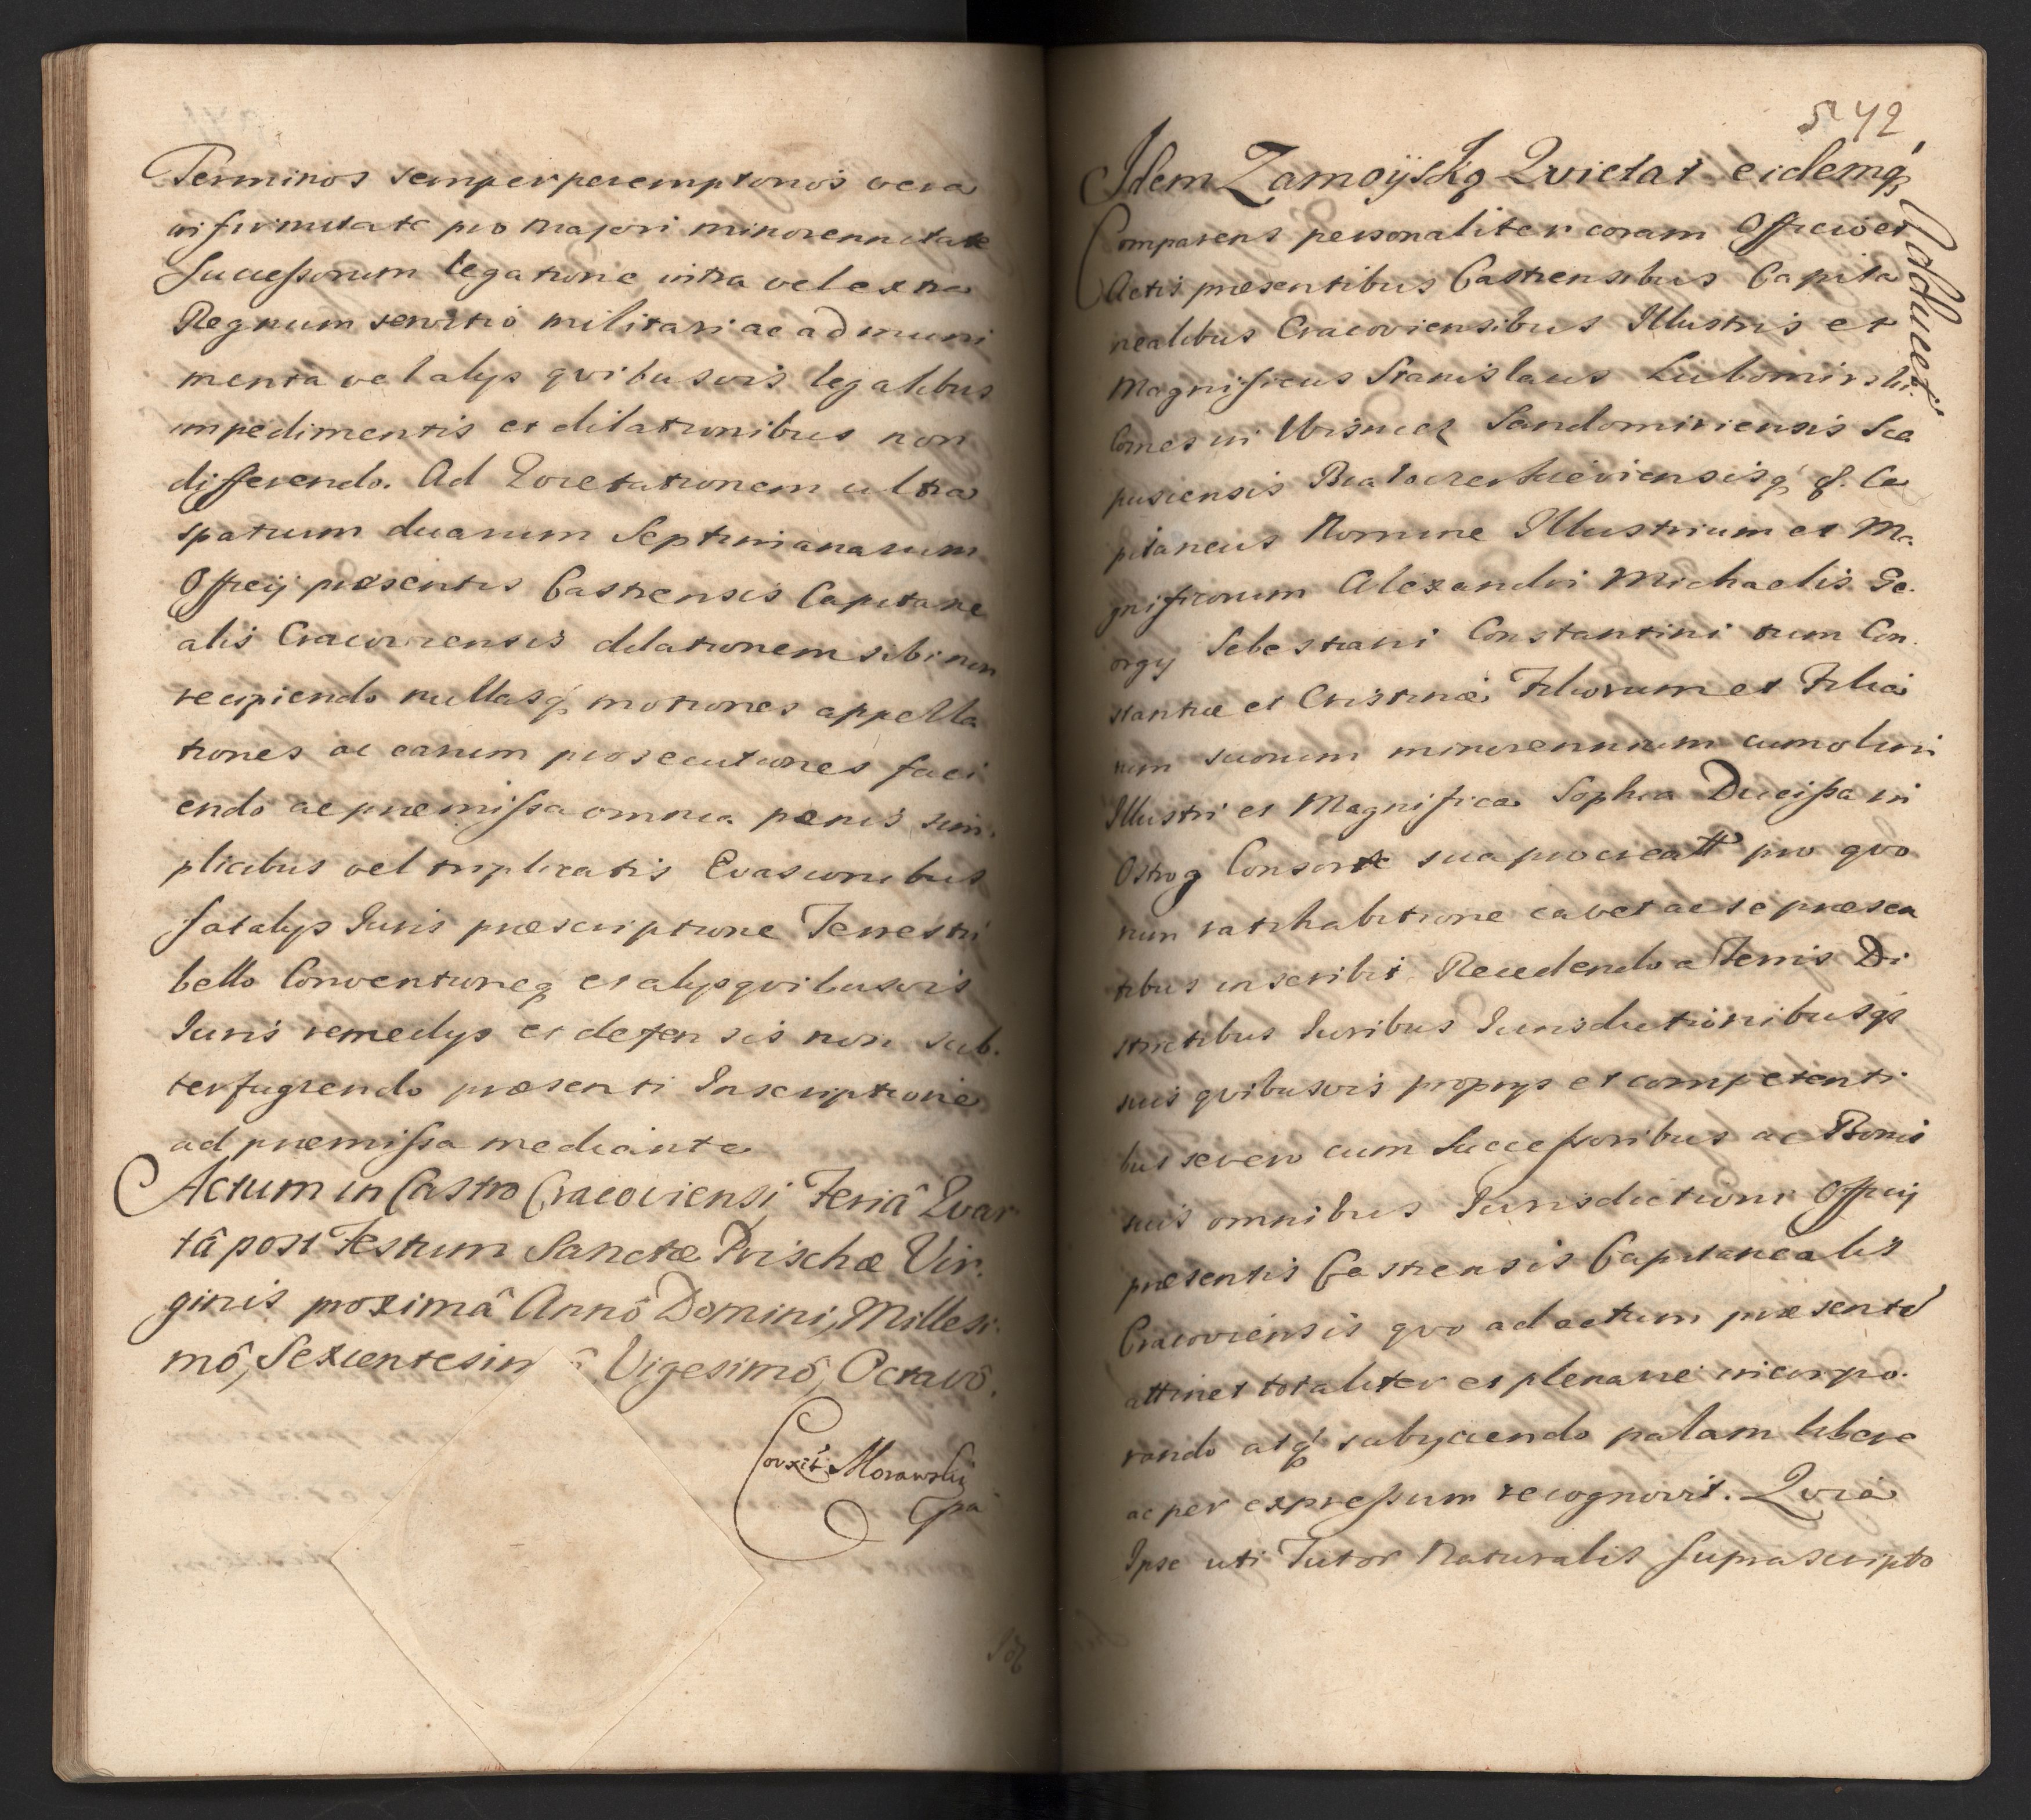 Terminos semper peremptorios vera
infirmitate pro majori minorennitate
Successorum legatione intra vel extra
Regnum servitio militari ac ad muni
menta vel alys qvibusvis legalibus
impedimentis et dilationibus non
differendo. Ad Qvietationem ultra
spatium duarum Septimanarum
Officij præsentis Castrensis Capitane
alis Cracoviensis dilationem sibi non
recipiendo nullasq, motiones appella
tiones ac earum prosecutiones faci
endo ac præmissa omnia pænis sim.
plicibus vel triplicatis Evasionibus
fatalys Juris præscriptione Terrestri
bello Conventioneq, et alys qvibusvis
Juris remedys et defensis non sub.
terfugiendo præsenti Inscriptione
ad præmissa mediante
Actum in Castro Cracoviensi, Feriâ Qvar
tâ post Festum Sanctæ Prischæ Vir.
ginis proximâ Annô Domini, Millesi.
mô, Sexcentesim Vigesimô, Octavô.
Morawski
542
Idem Zamoÿski Qvietat eidemq,
Adducet
Comparens personaliter coram Officio et
Actis præsentibus Castrensibus Capita
nealibus Cracoviensibus Illustris et
Magnificus Stanislaus Lubomirski
Comes in Wisnicz Sandomiriensis Sce
pusiensis q, &. Ca
pitaneus Nomine Illustrium et Ma.
gnificorum Alexandri Michaelis Ge.
orgy Sebestiani Constantini tum Con.
stantiæ et Cristinæ Filiorum et Filia
rum suorum minorennium cum olim
Illustri et Magnifica Sophia Ducissa in
Ostrog Consorte sua procreatt pro qvo
rum ratihabitione cavet ac se præsen
tibus inscribit Recedendo a Terris Di
strictibus Juribus Jurisdictionibusqs
suis qvibusvis proprys et competenti
bus severo cum Successoribus ac Bonis
suis omnibus Jurisdictioni Officij
præsentis Castrensis Capitanealis
Cracoviensis qvo ad actum præsente
attinet totaliter et plenarie incorpo.
rando atq, subyciendo palam libere
ac per expressum recognovit. Qvia
Ipse uti Tutor Naturalis suprascripto